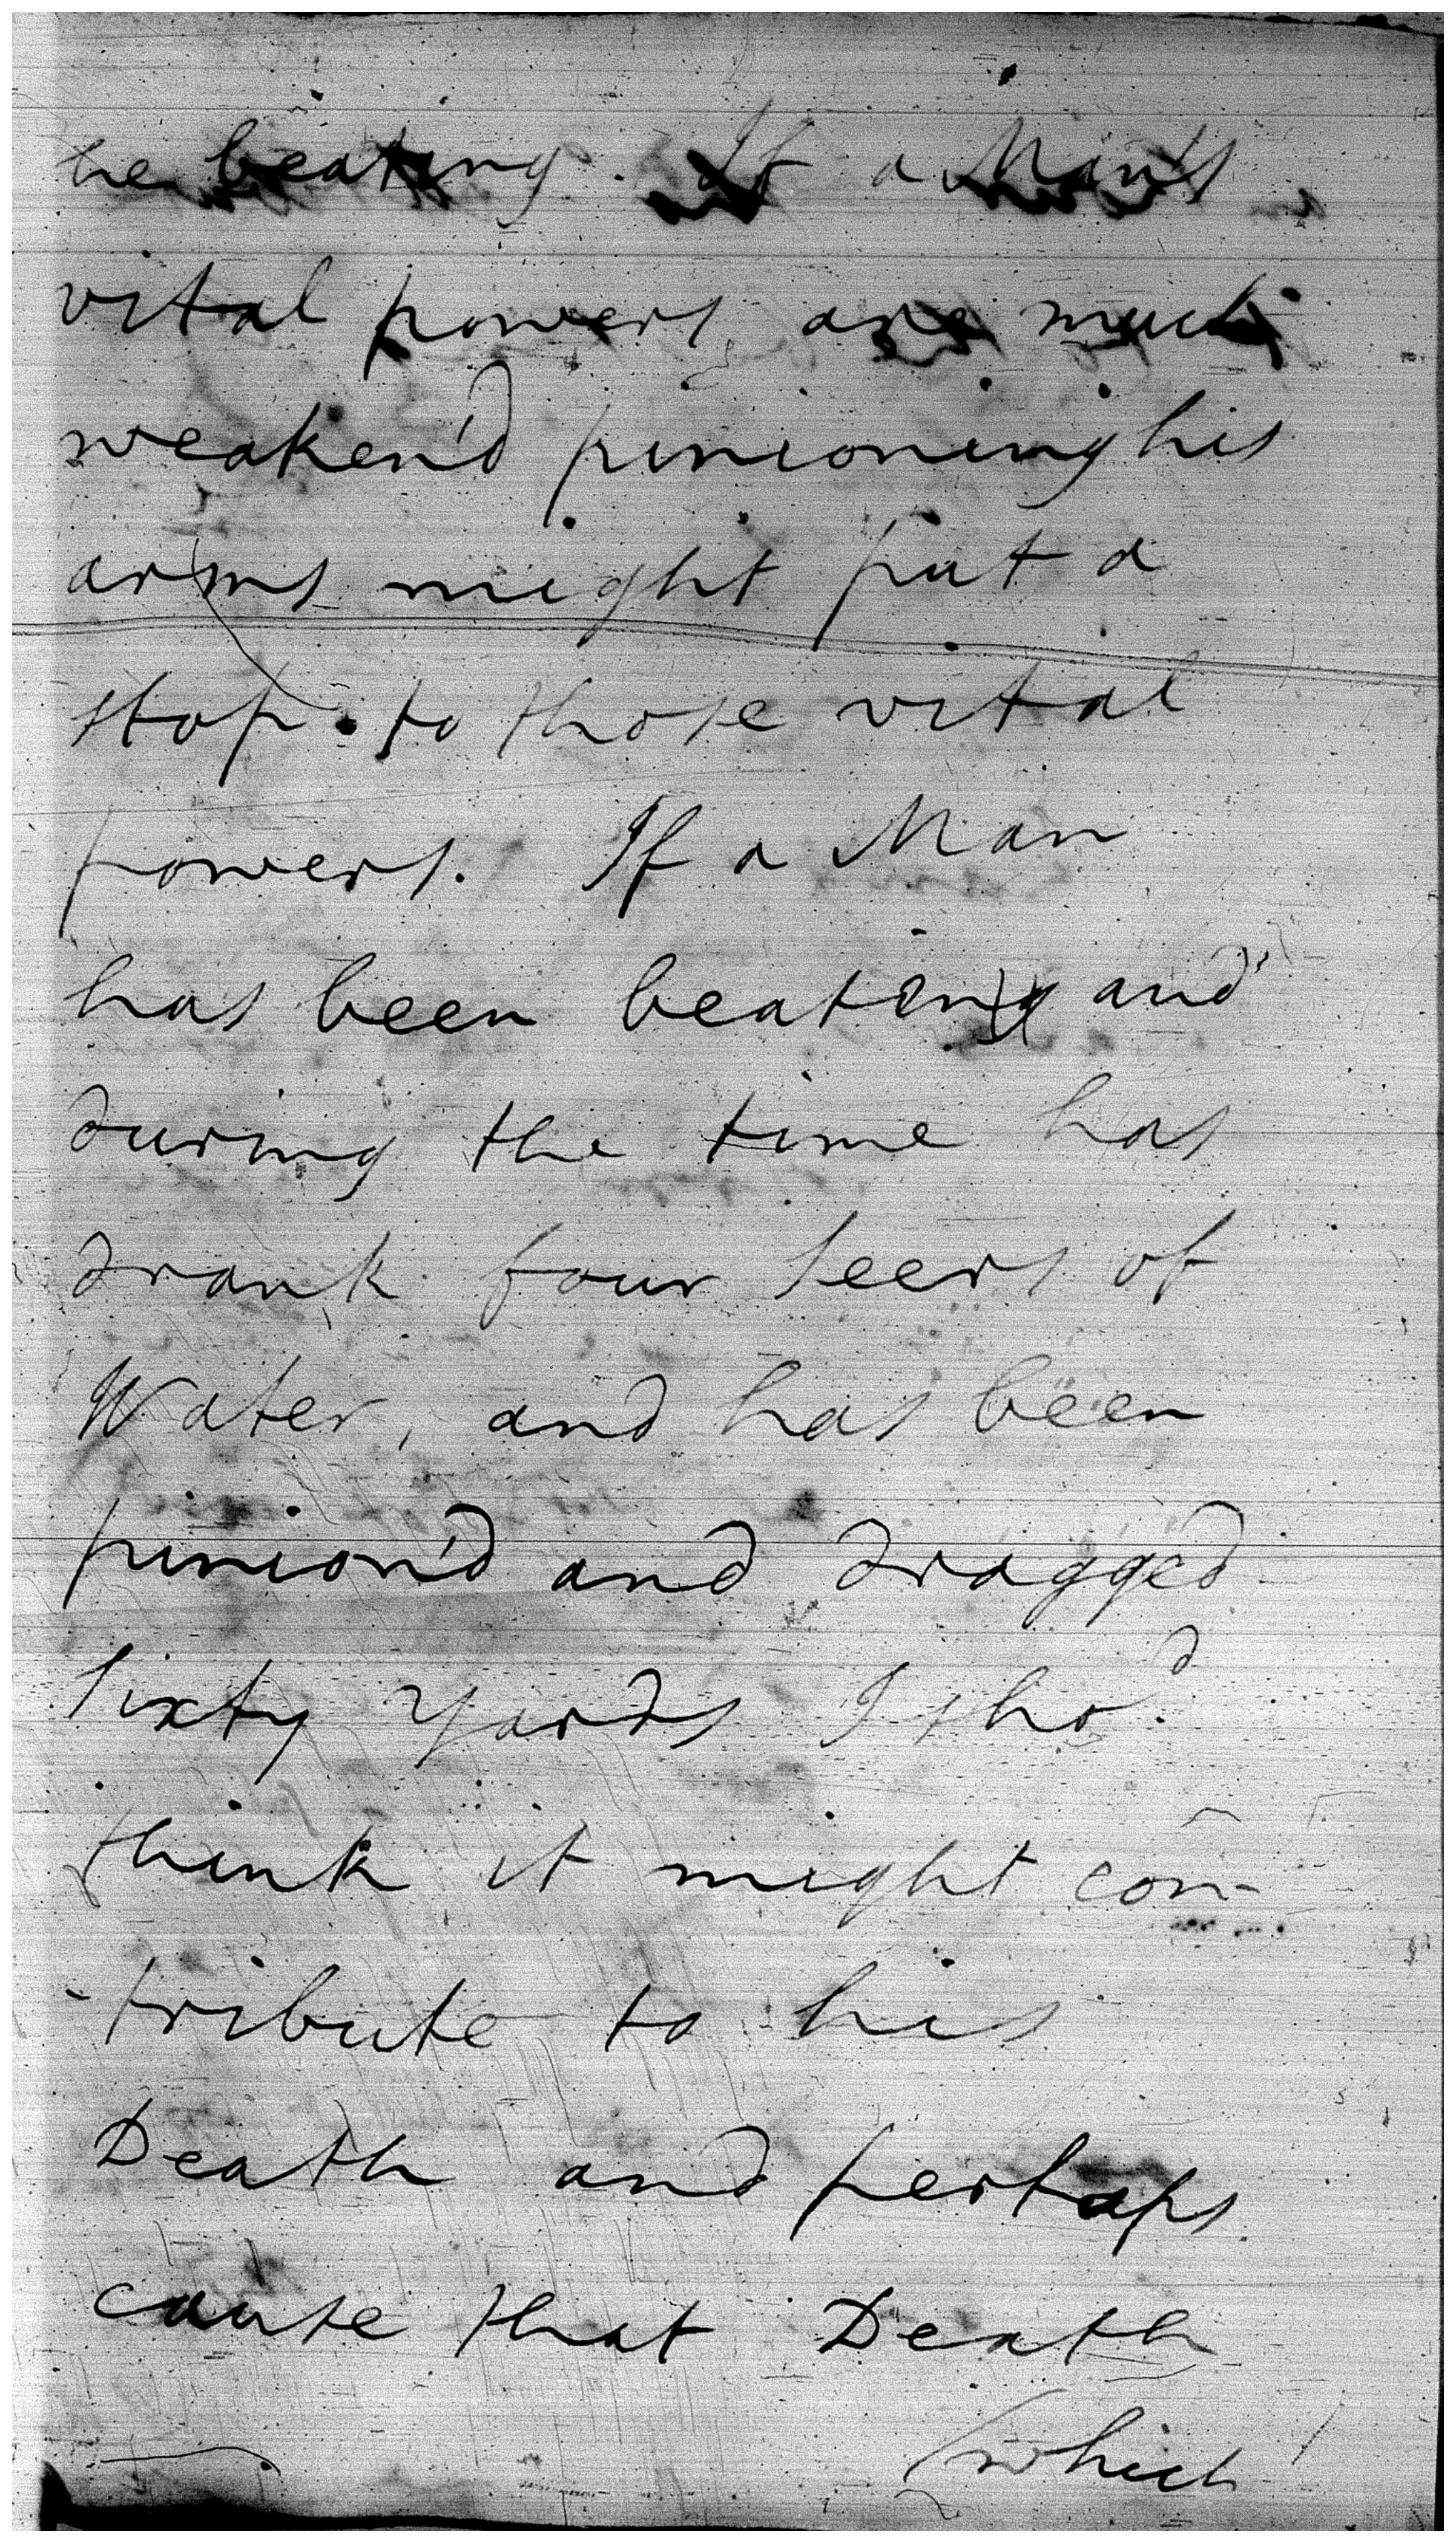 he beating. If a Man's
vital powers are much
weaken'd pinioning his
arms might put a
stop to those vital
powers. If a Man
has been beaten and
during the time has
drank four Seers of
Water, and has been
pinion'd and dragged
Sixty Yards I shod.
think it might con-
-tribute to his
Death and perhaps
cause that Death
which